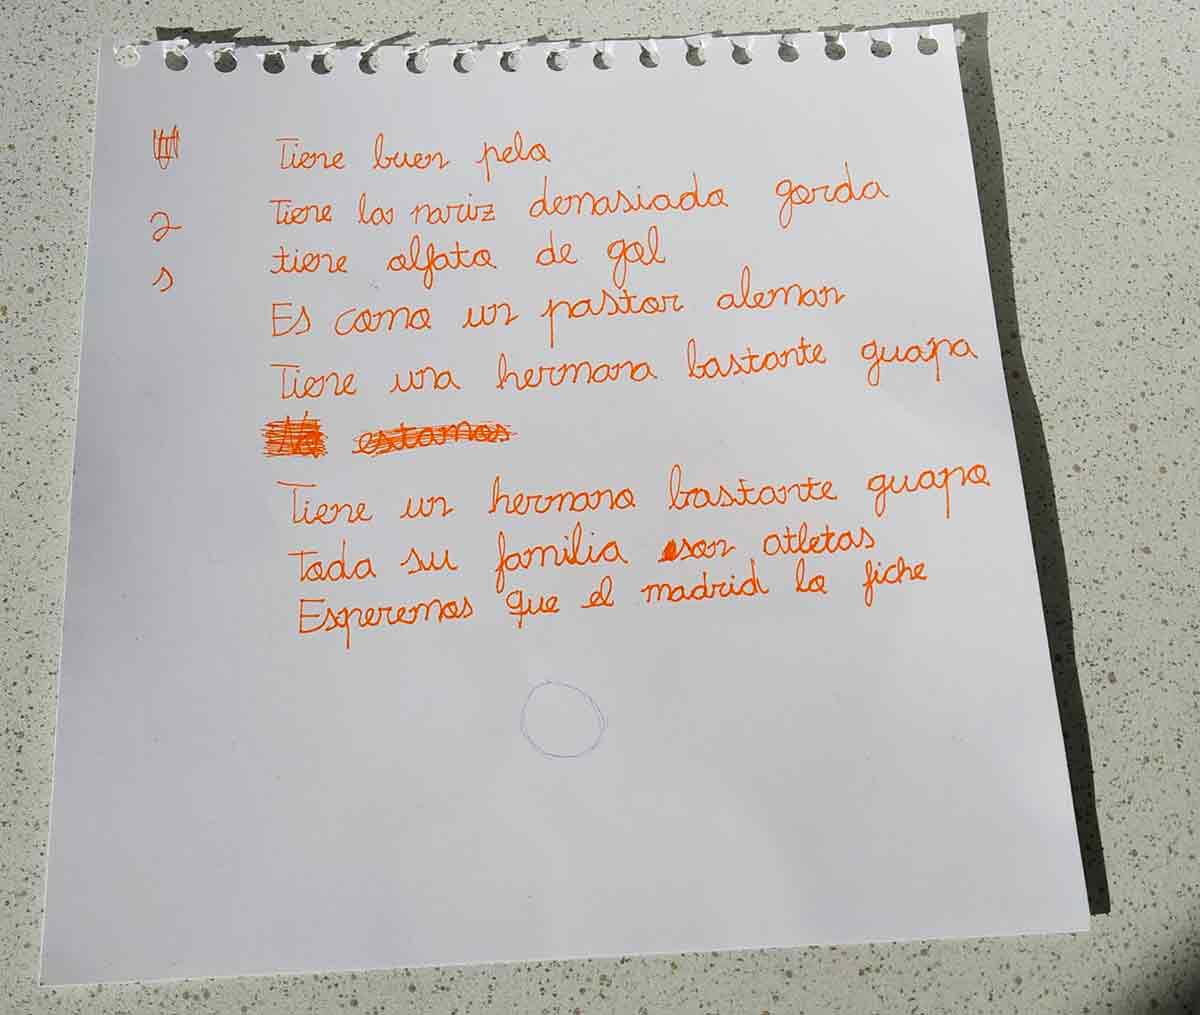 Tiene buen pelo
2 Tiene la nariz demasiada gorda
s tiene olfato de gol
Es como un pastor aleman
Tiene una hermana bastante guapa
No estamos
Tiene un hermano bastante guapo
Toda su familia son atletas
Esperemos que el madrid lo fiche